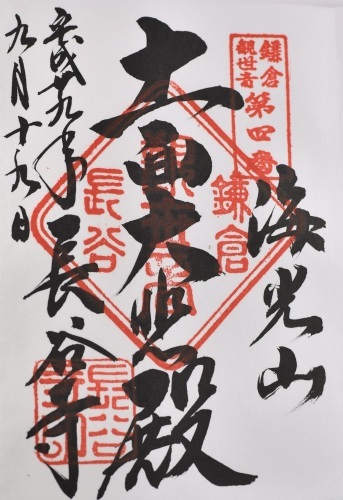 鎌倉
観世音
第四番
海光山
鎌倉
観世音
長谷
十一面大悲殿
長谷寺
平成十九年
九月十九日